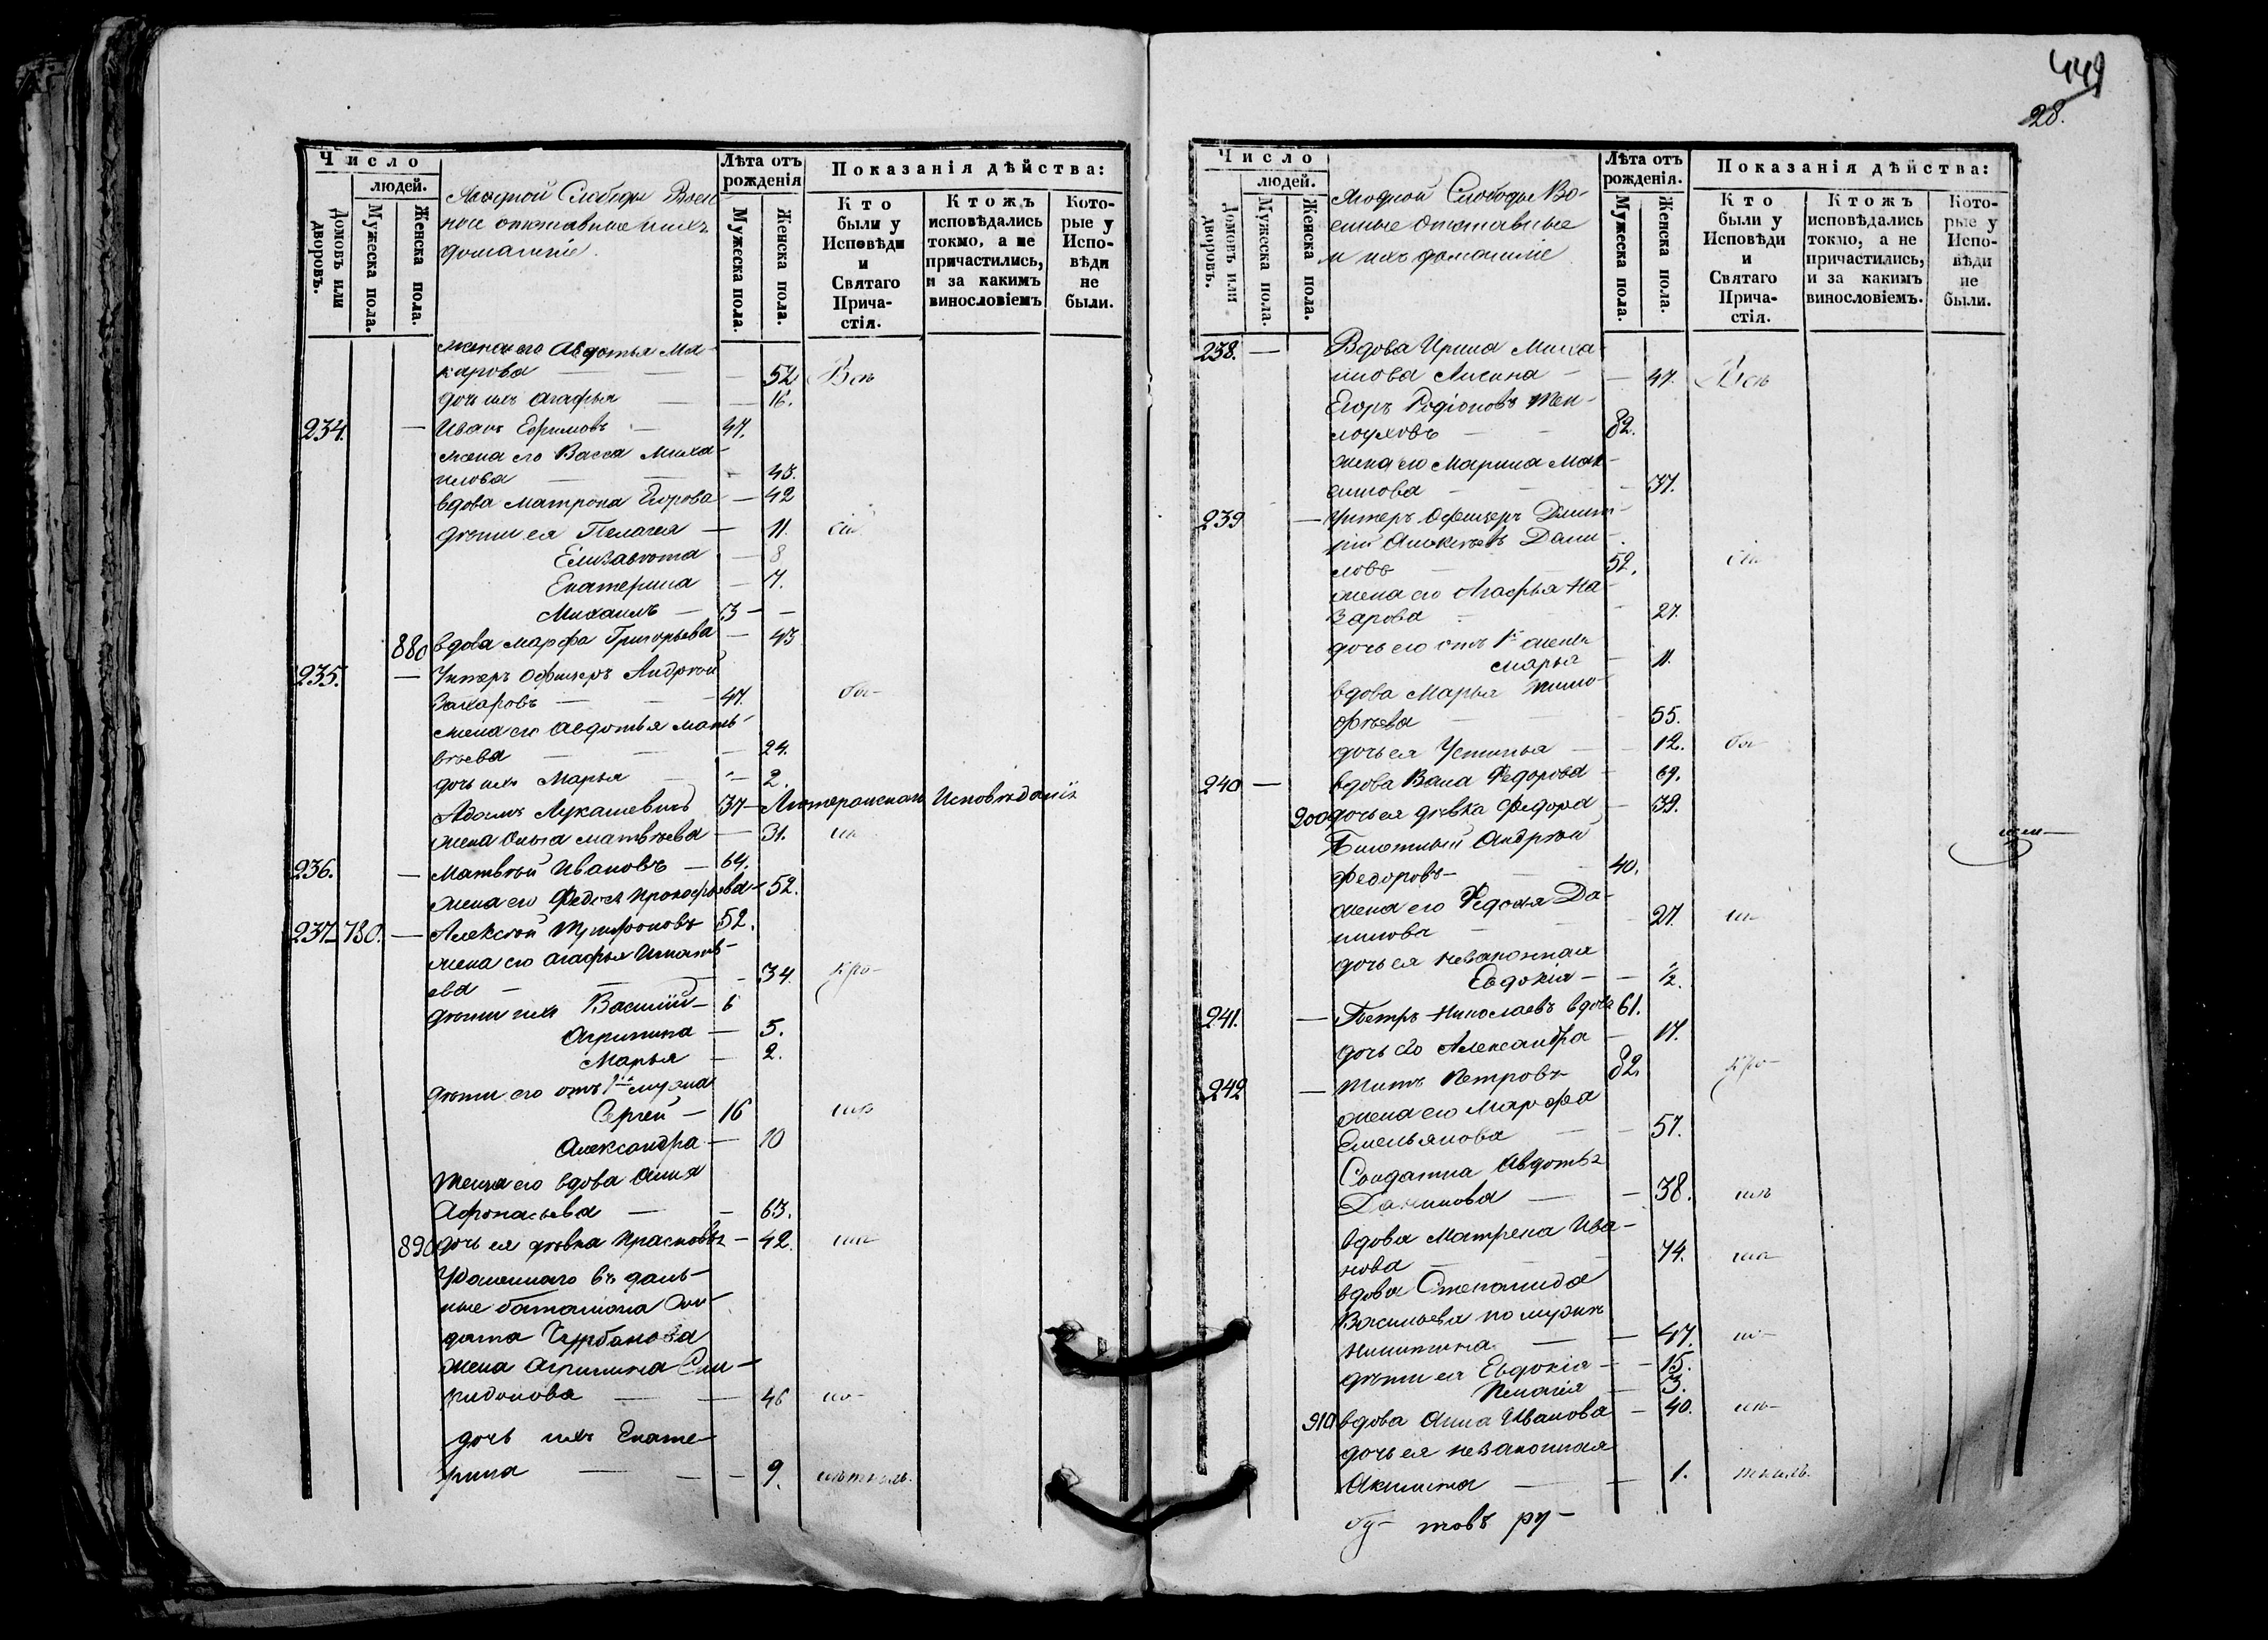 Число
людей.
Домовъ или дворовъ.
Мужеска пола.
Женска пола.
Слободы Воен-
ные отставные и ихъ
домашніе.
Лѣта отъ рожденія
Мужеска пола.
Женска пола.
Показанія дѣйства:
Кто были у Исповѣди и Святаго Прича-стія.
Ктожъ исповѣдались токмо, а не причастились, и за какимъ винословіемъ
Кото-рые у Испо-вѣди не были.
жена его Авдотья Ма-
карова — — — 52 Всѣ
дочь ихъ Агафья — — 16.
234. — Иванъ Ефимовъ — 47.
жена его Васса Миха-
илова — — — 43.
вдова Матрона Егорова — 42
дѣти ея Пелагея — 11.
Елизавѣта — 8
Екатерина — 7.
Михаилъ — 3 — —
880 вдова Марфа Григорьева — 43
235. — Унтеръ Офицеръ Андрей
Захаровъ — — 47.
жена его Авдотья Матв-
ѣева — — — 24.
дочь ихъ Марья — — 2.
Адамъ Лукашевичъ 37 — Лютеранскаго Исповѣданія
жена Ольга Матвѣева — 31.
236. — Матвѣй Ивановъ — 64.
жена его Федосья Прокофьева — 52.
237. 780. — Алексѣй Трифоновъ 52.
жена его Агафья Игнать-
ева — — — 34.
дѣти ихъ Василій — 6
Агрипина — 5.
Марья — 2.
дѣти его отъ 1
Сергей — 16
Александра — 10
Теща его вдова Анна
Афонасьева — — 63.
890 дочь ея дѣвка Прасковья — 42.
Удаленнаго въ даль-
ные баталіона Сол-
дата Чурбанова
жена Агрипина Спи-
ридонова — — 46
дочь ихъ Екате-
рина — — — 9.
449
28.
Число
людей.
Домовъ или дворовъ.
Мужеска пола.
Женска пола.
Слободы Во-
енные отставные
и ихъ домашніе
Лѣта отъ рожденія.
Мужеска пола.
Женска пола.
Показанія дѣйства:
Кто были у Исповѣди и Святаго Прича-стія.
Ктожъ исповѣдались токмо, а не причастились, и за какимъ винословіемъ.
Кото-рые у Испо-вѣди не были.
238. — Вдова Ирина Миха-
илова — — 47. Всѣ
Егоръ Родіоновъ Теп-
лоуховъ — — 32.
жена его Марина Мак-
симова — — — 37.
239 — Унтеръ Офицеръ Дмит-
рій Алексѣевъ Дани-
ловъ — — 52.
жена его Агафья На-
зарова — — 27.
дочь его отъ 1й жены
Марья — 11.
вдова Марья Тимо-
фѣева — — — 55.
дочь ея Устинья — — 12.
240 — вдова Федорова — 69.
900 дочь ея дѣвка Федора — 39.
Билетный Андрей
Федоровъ — — 40.
жена его Федосья Да-
нилова — — — 27.
дочь ея незаконная
Евдокія — — ½.
241. — Петръ Николаевъ вдовъ 61.
дочь его Александра — 17.
242 — Титъ Петровъ 82.
жена его Марфа
Емельянова — — 57.
Солдатка Авдотья
Данилова — — 38.
вдова Матрена Ива-
нова — — — 74.
вдова Степанида
Васильева по мужѣ
Никитина — — 47.
дѣти ея Евдокія — — 15.
Пелагія — 3.
910 вдова Анна Иванова — 40.
дочь ея незаконная
Акилина — — 1.